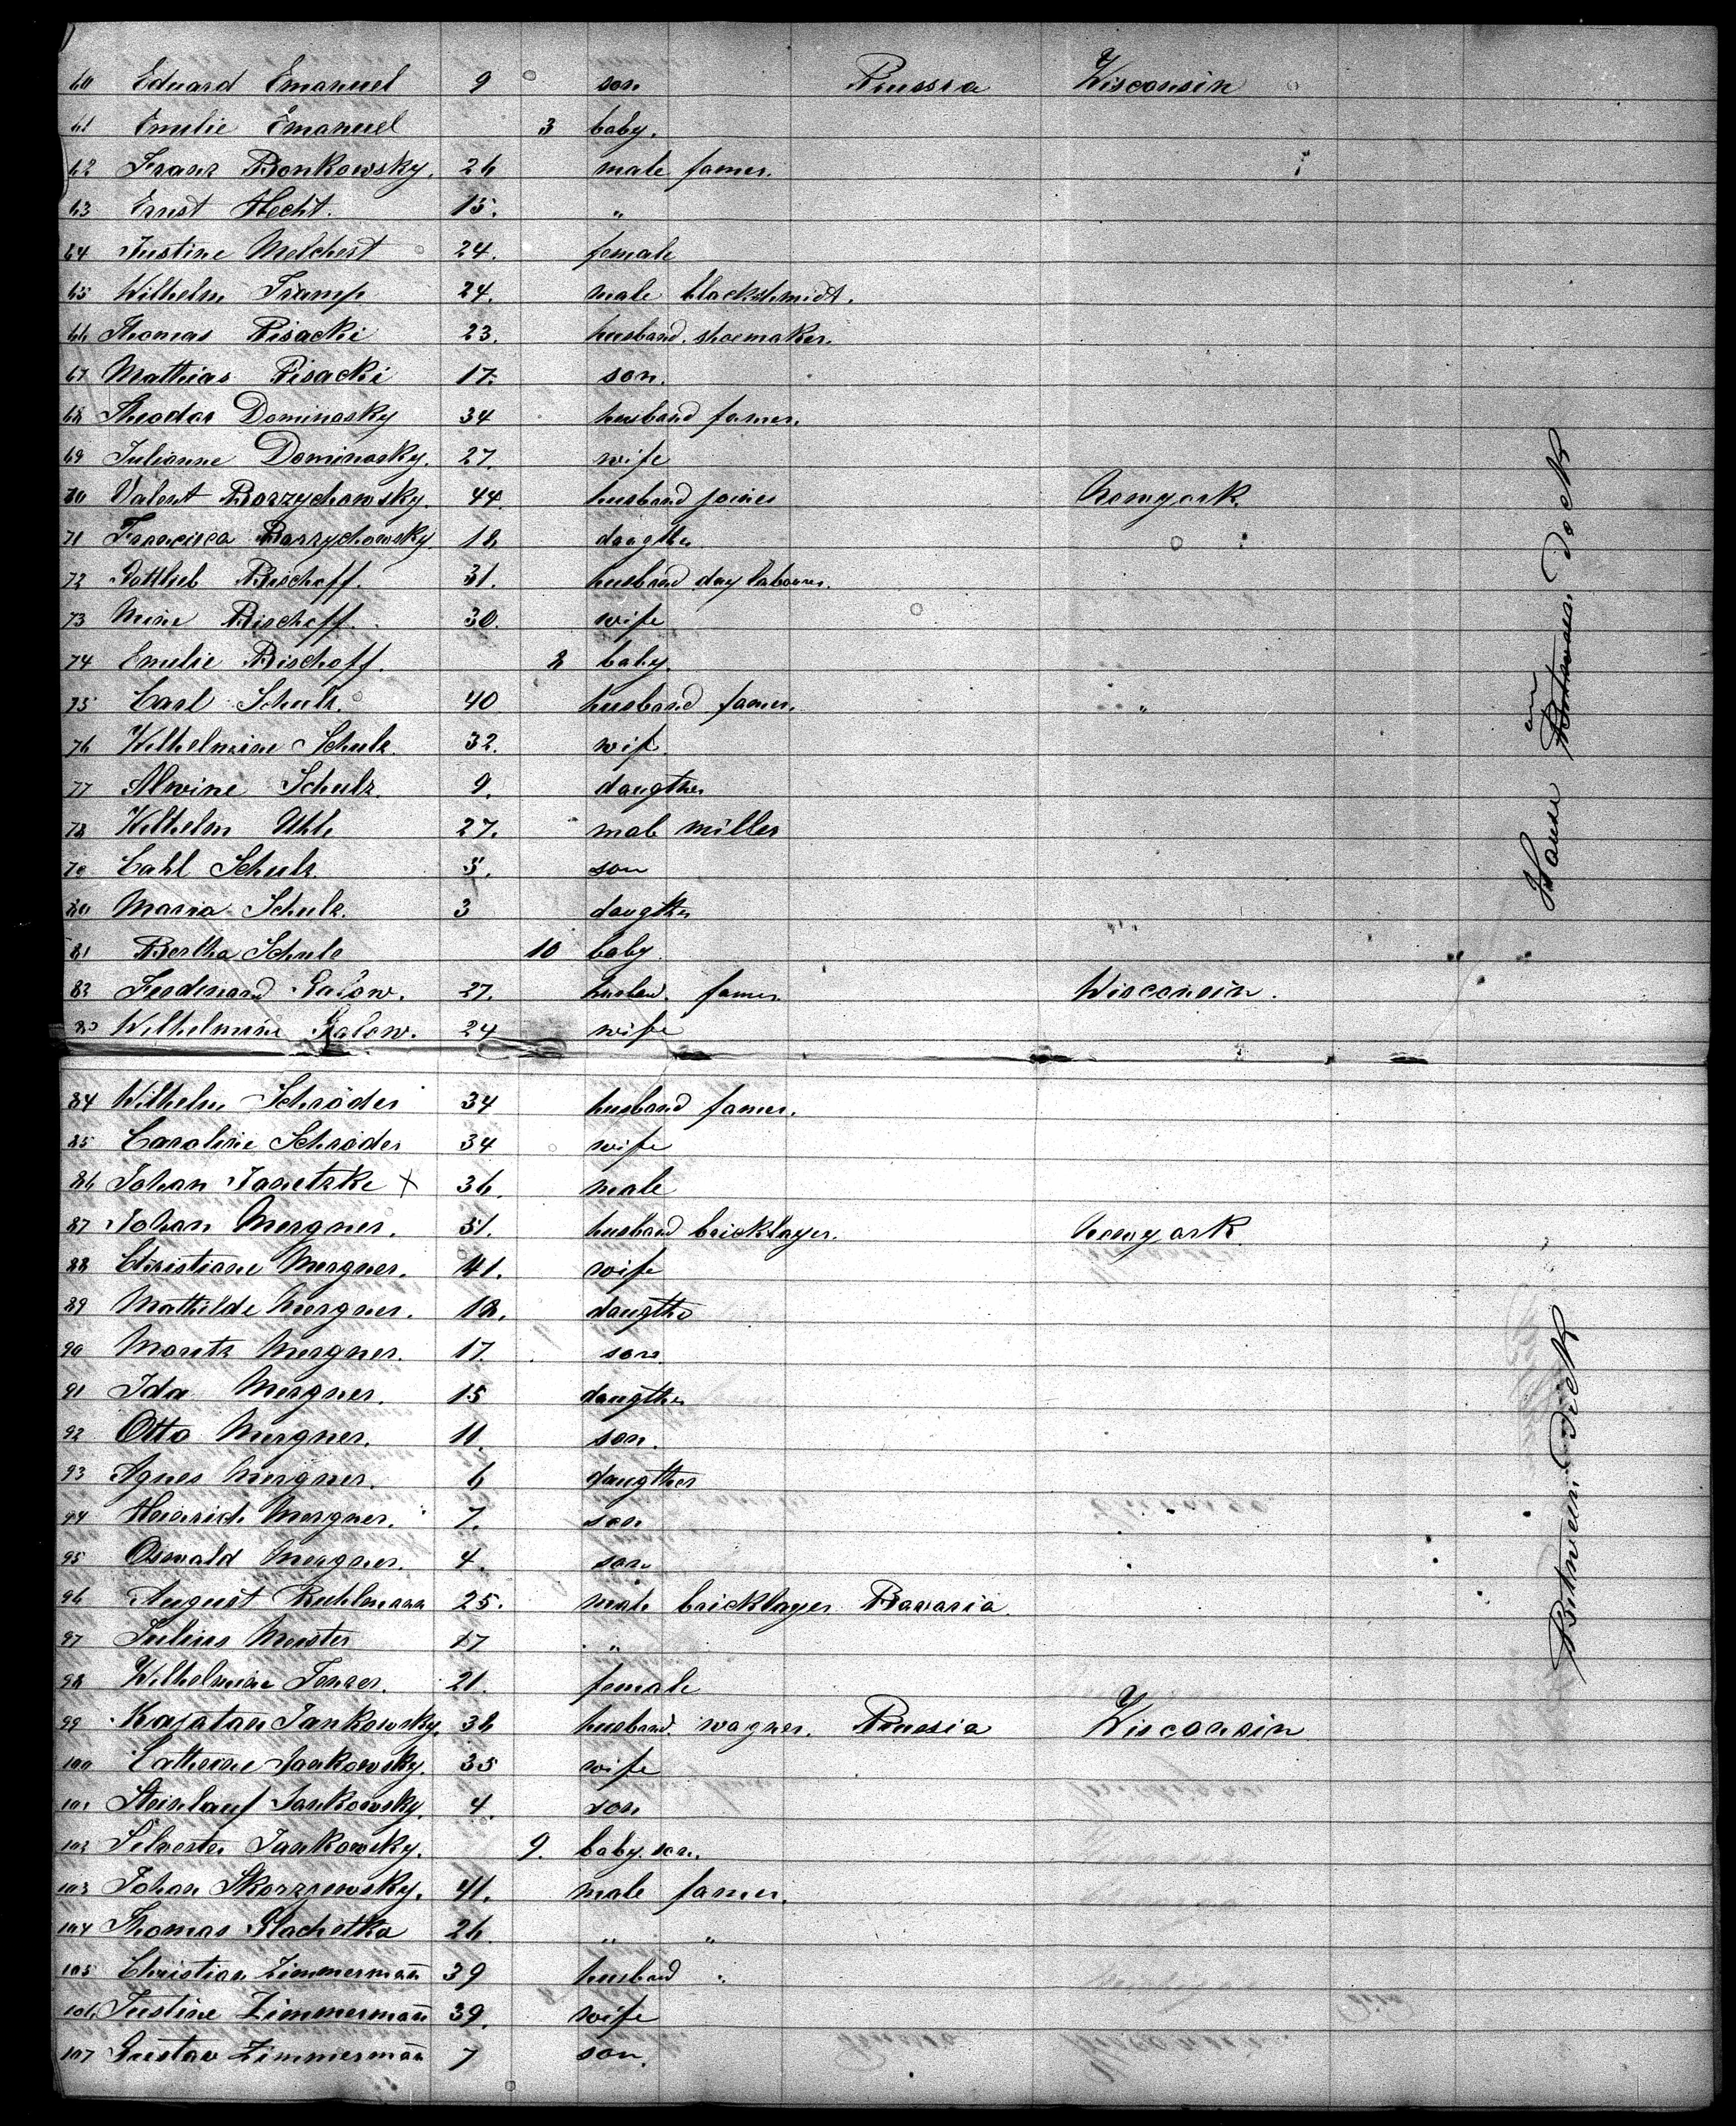 60 Eduard Emanuel 9 son Prussia Wisconsin
61 Emilie Emanuel 3 baby.
62 Franz Bonkowsky. 26 male famer.
63 Ernst Hecht. 15. "
64 Justine Melchert 24. female
65 Wilhelm Tramp 24. male blackshmidt.
66 Thomas Pisacki 23. husband. shoemaker.
67 Mathias Pisacki 17. son.
68 Theodor Dominosky 34 husband famer.
69 Julianne Dominosky. 27. wife
70 Valent Borzychowsky. 44. husband joiner Newyork.
71 Francisca Borzychowsky. 18 daugther
72 Gottlieb Bischoff. 31. husband day labourer.
73 Mine Bischoff. 30. wife
74 Emilie Bischoff. 8 baby.
75 Carl Schulz. 40 husband famer. "
76 Wilhelmine Schulz. 32. wif.
77 Alwine Schulz. 9. daugther
78 Wilhelm Uhl 27. male miller
79 Cahl Schulz 5. son
80 Maria Schulz. 3 daugther
81 Bertha Schulz 10 baby. " "
82 Ferdinand Galow. 27. husban. famer Wisconsin.
83 Wilhelmine Galow. 24 wife
84 Wilhelm Schröder 34 husband famer.
85 Caroline Schröder 34 wife
86 Johan Janetzke X 36. male
87 Johan Mergner. 51. husband bricklayer. Newyork.
88 Christiane Mergner. 41. wife
89 Mathilde Mergner. 18. daugther
90 Moritz Mergner. 17. son.
91 Ida Mergner. 15 daugther
92 Otto Mergner. 11. son.
93 Agnes Mergner. 6 daugther
94 Heinrich Mergner. 7. son
95 Oswald Mergner. 4. son
96 August Ruhlmann 25. male bricklayer Bavaria.
97 Julius Meister 17 "
98 Wilhelmine 21. female
99 Kajatan Jankowsky. 38 husband. wagner. Prussia Wisconsin
100 Catherine Jankowsky. 35 wife
101 Steinlauf Jankowsky. 4. son
102 Silvester Jankowsky. 9. baby. son.
103 Johan Skorzewsky. 41. male famer.
104 Thomas Slachetka 26. " "
105 Christian Zimmermañ 39 husband "
106 Justine Zimmermañ 39. wife
107 Gustav Zimmermañ 7 son.
Deck
Between Deck